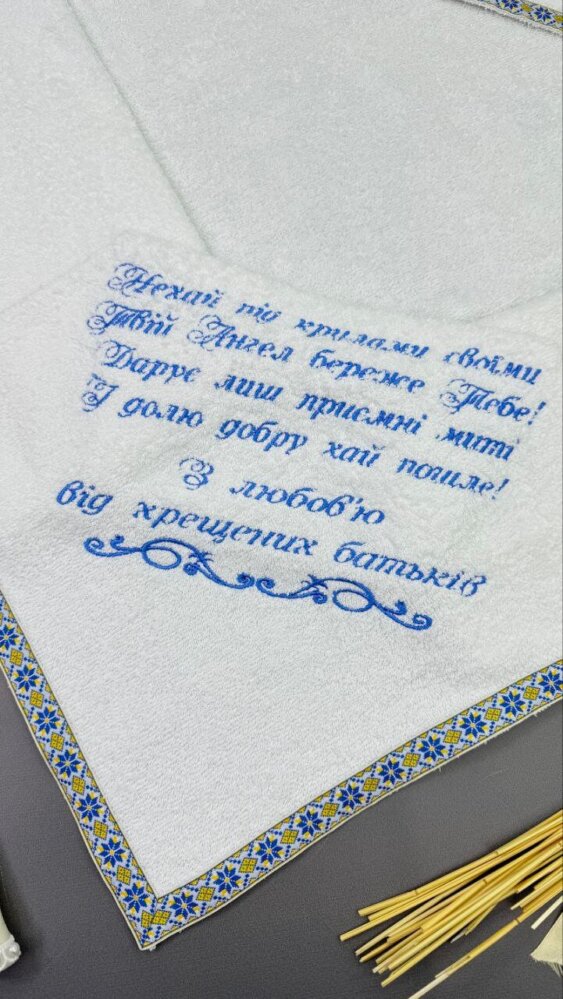 Нехай під крилами своїми
Твій Ангел береже Тебе!
Дарує лиш приємні миті
І долю добру хай пошле!
З любов'ю
від хрещених батьків